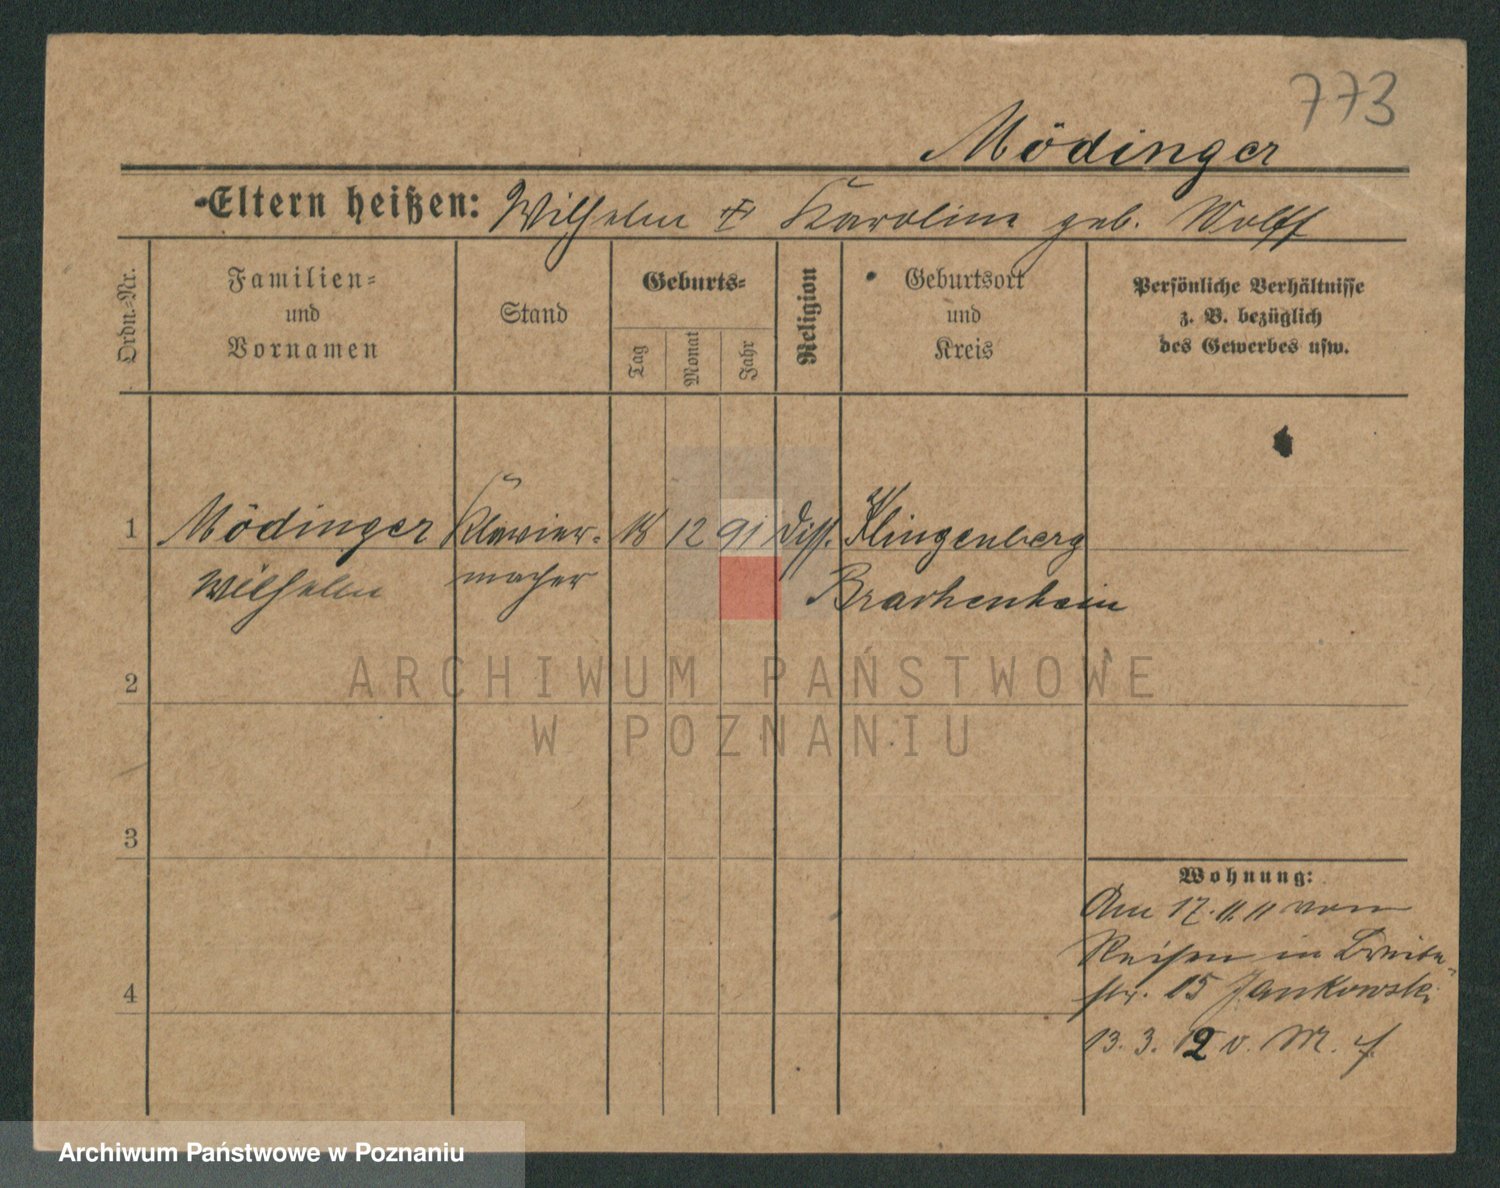 773
Mödinger
Eltern heißen: Wilhelm & Karoline geb. Wolff
Ordn.-Nr.
Familien- und Vornamen
Stand
Geburts-
Tag
Monat
Jahr
Religion
Geburtsort und Kreis
Persönliche Verhältnisse z. B. bezüglich des Gewerbes usw.
1 Mödinger Klavier- 18 12 91 diss. Klingenberg
Wilhelm macher Brackenheim
2
3
4
Wohnung:
Am 17.11.11 von
Reisen in Breite-
str. 15 Jankowski
13. 3. 12 v. M.
ARCHIWUM PAŃSTWOWE
W POZNANIU
Archiwum Państwowe w Poznaniu